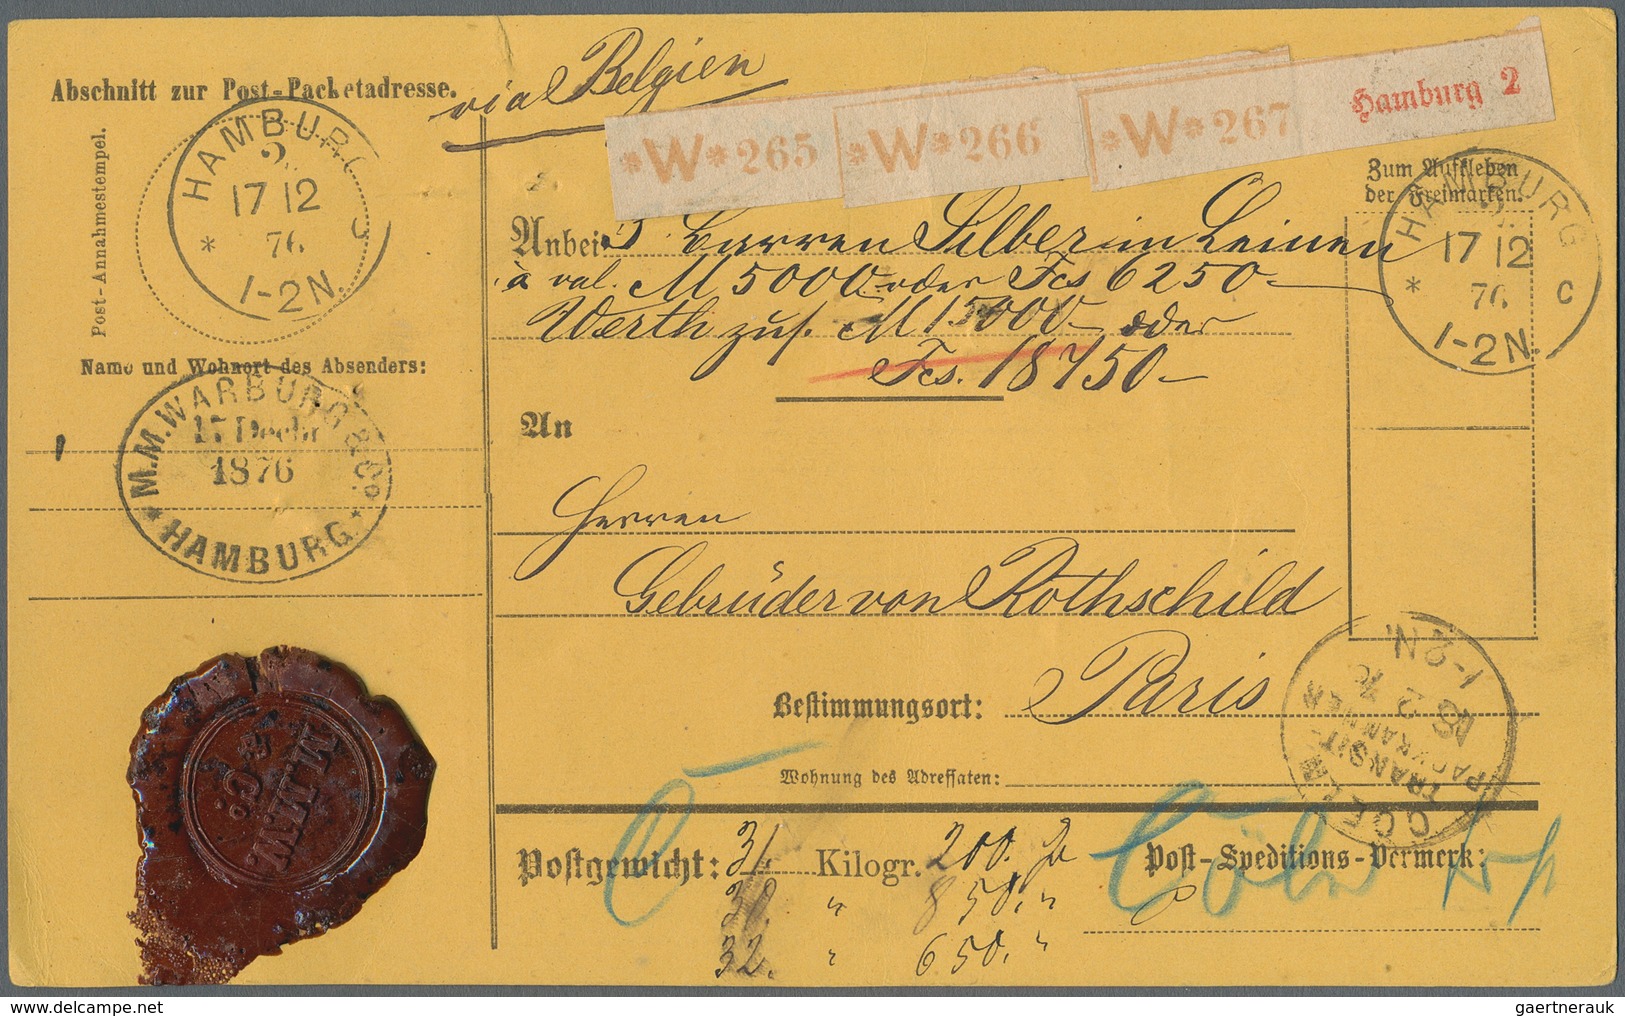 Abschnitt zur Post-Packetadresse.
via Belgien
*W*265
*W*266
*W*267
Hamburg 2
Post-Annahmestempel.
HAMBURG
2
17 12
76
1-2N.
* C
Zum Aufkleben
der Freimarken.
HAMBURG
2
17 12
76
1-2N.
* C
Anbei 3 Barren Silber in Leinen
à val. M 5000 oder Fcs 6250-
Werth zus. M 15000- oder
Fcs. 18750-
Name und Wohnort des Absenders:
M.M. WARBURG & Co
17 Decbr
1876
* HAMBURG *
An
Herren
Gebrüder von Rothschild
Bestimmungsort: Paris
Wohnung des Adressaten:
COELN
TRANSIT-
PACKKAMMER
18 12 76
1-2N.
M.M.W.
& Co:
Postgewicht: 31. Kilogr. 200. gr
30. " 850. "
32. " 650. "
Post-Speditions-Vermerk:
Cöln
gaertnerauk @ delcampe.net